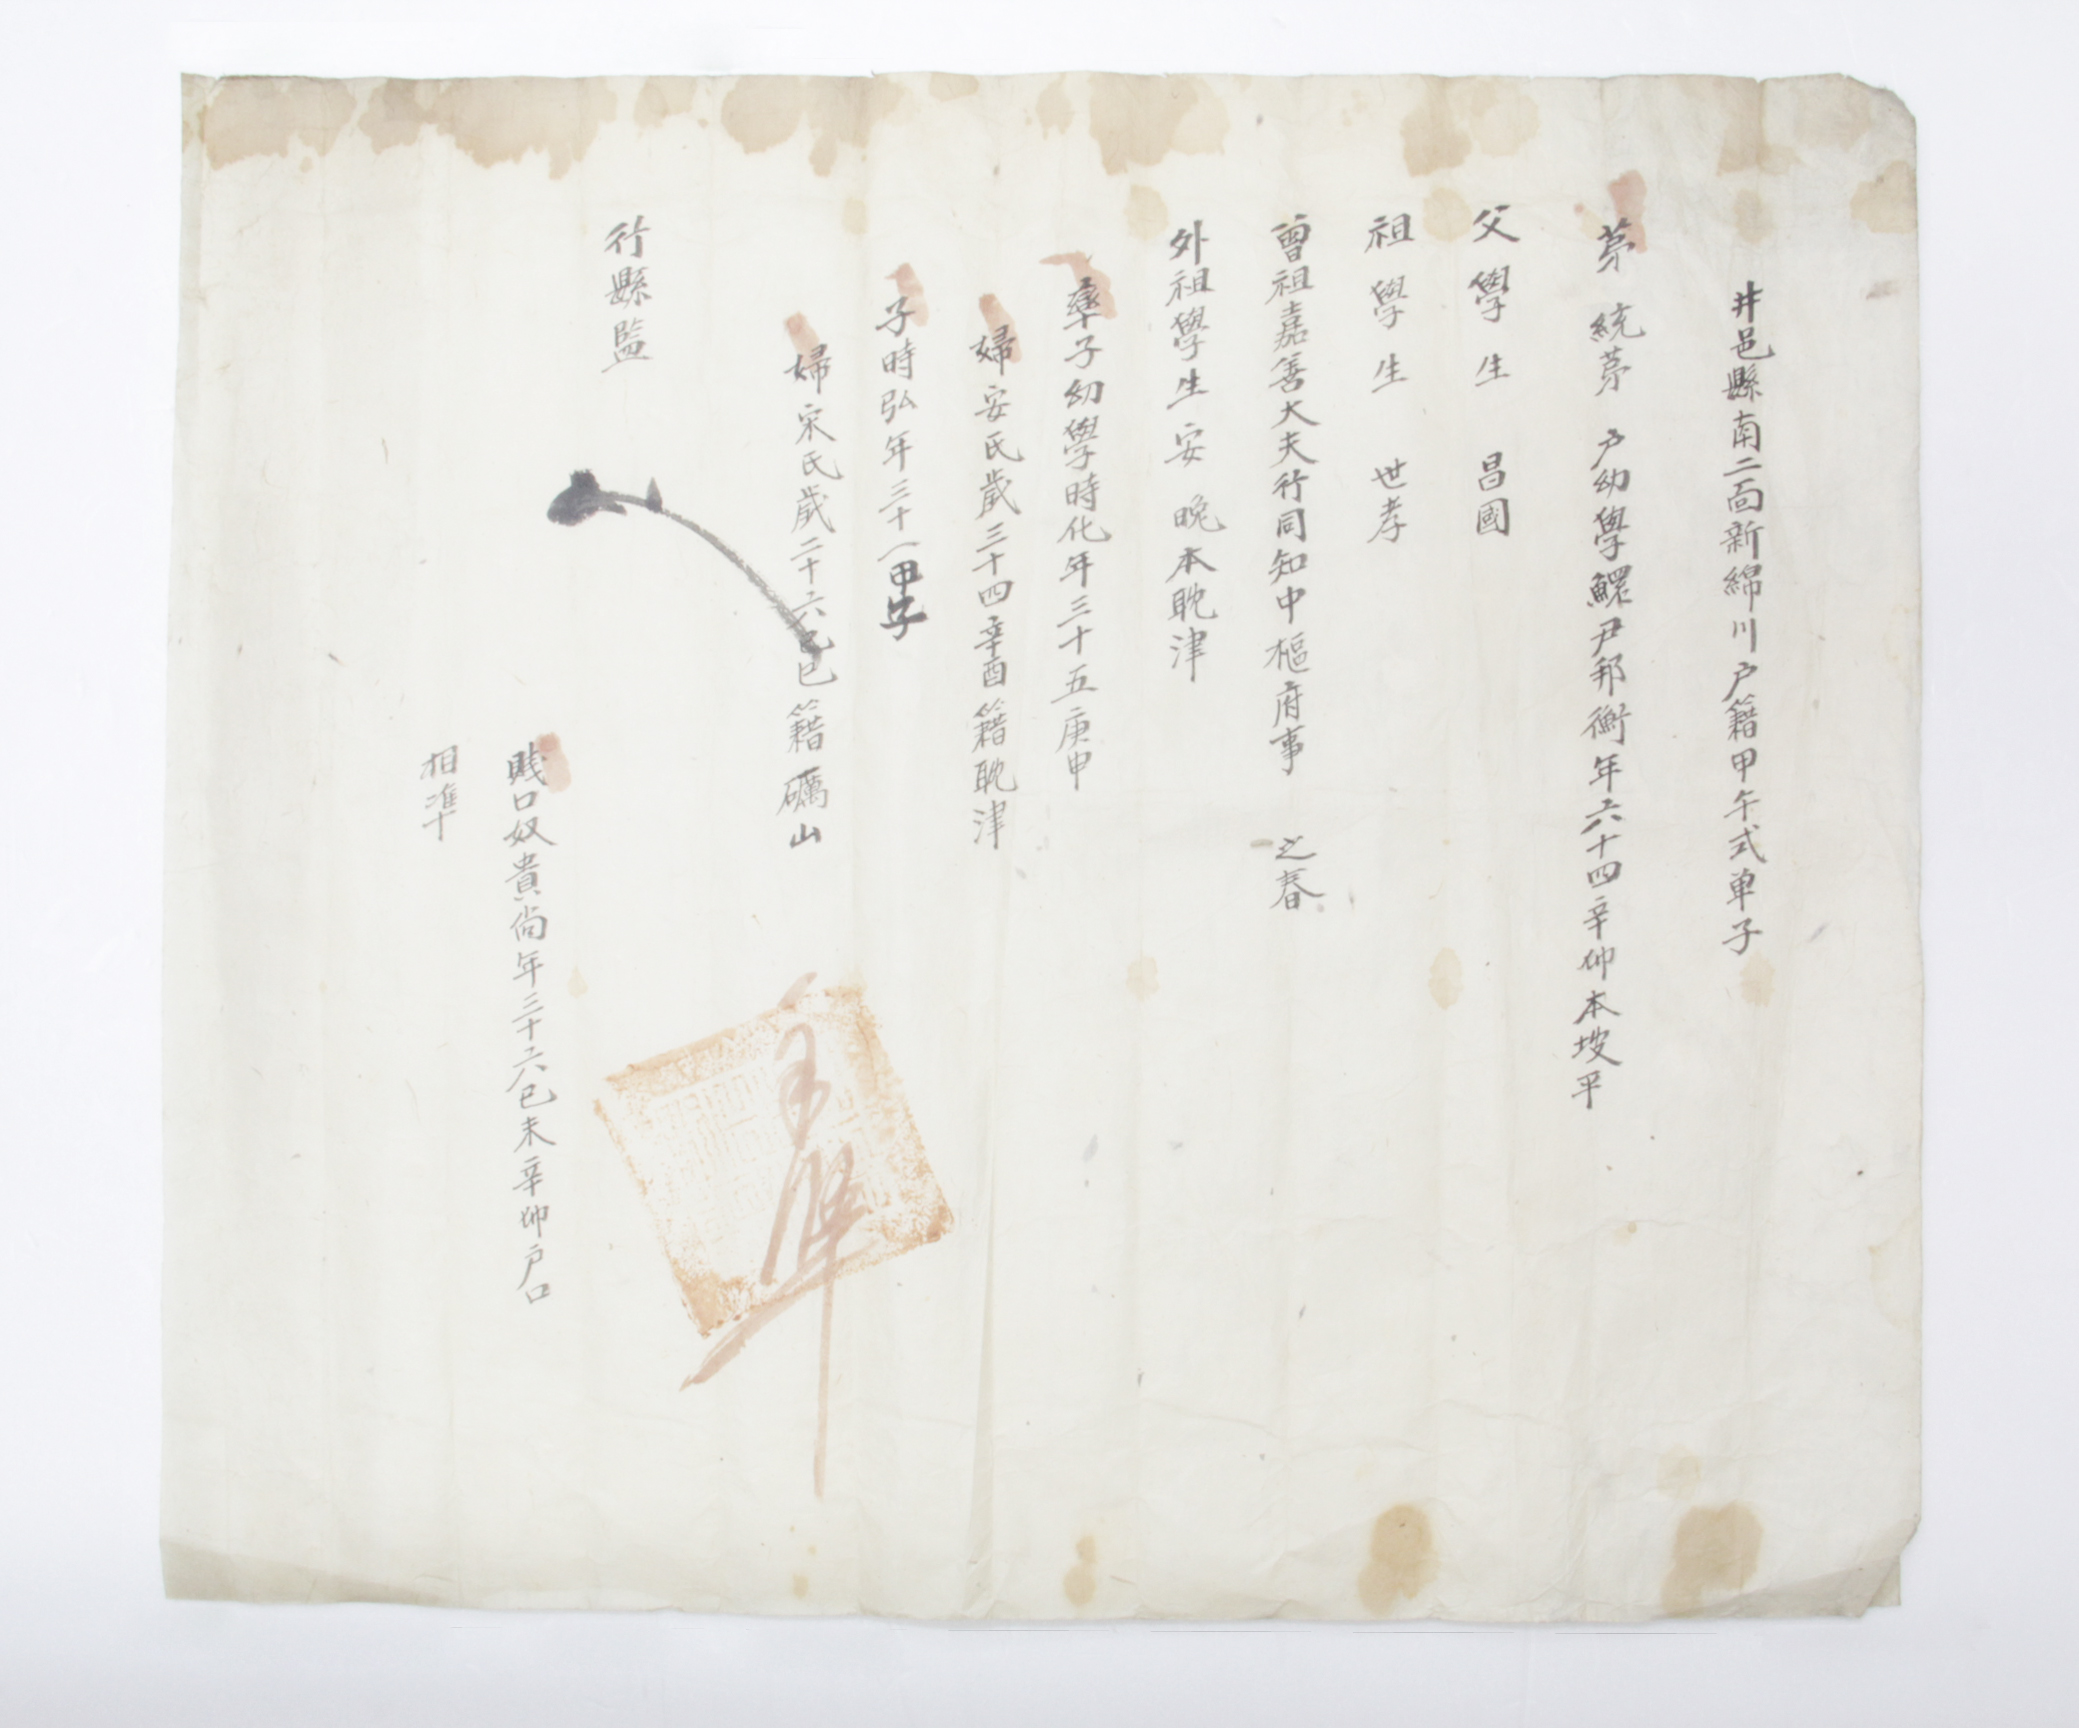 井邑縣南二面新綿川戶籍甲午式单子
茅 統茅 戶幼學鰥尹邦衡年六十四辛卯本坡平
父學生 昌國
祖學生 世孝
曾祖嘉善大夫行同知中樞府事 之春
外祖學生安 晚本耽津
率子幼學時化年三十五庚申
婦安氏歲三十四辛酉籍耽津
子時弘年三十一甲子
婦宋氏歲二十六己巳籍礪山
行縣監
賤口奴貴尚年三十六己未辛卯戶口
相準